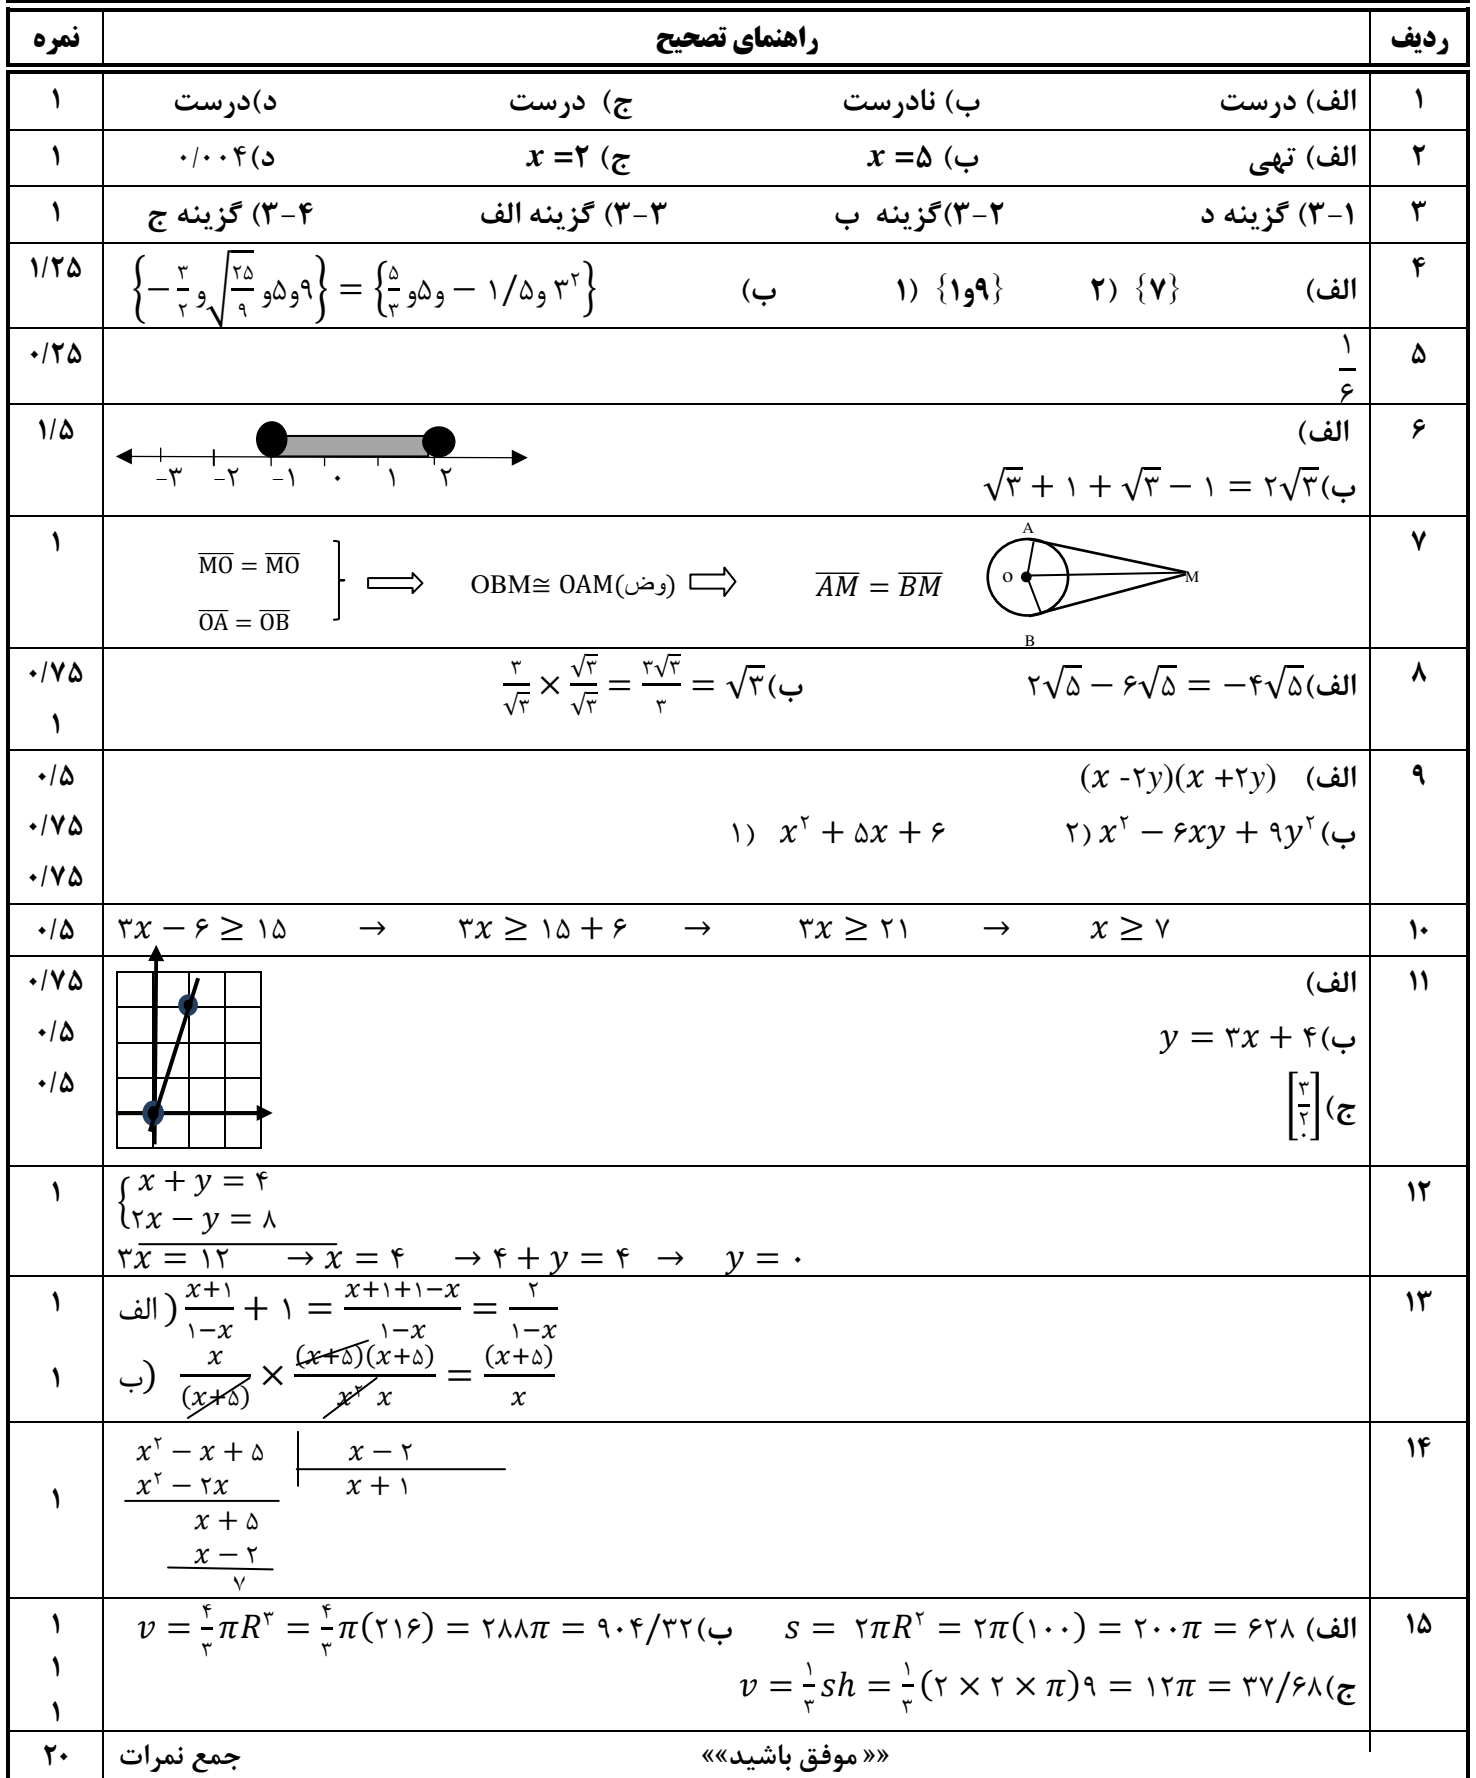 ردیف راهنمای تصحیح نمره
۱ الف) درست ب) نادرست ج) درست د)درست ۱
۲ الف) تهی ب) x =۵ ج) x =۲ د)۰/۰۰۴ ۱
۳ ۳-۱) گزینه د ۳-۲)گزینه ب ۳-۳) گزینه الف ۳-۴) گزینه ج ۱
۴ الف) ۲) {۷} ۱) {۹و۱} ب) {−۳/۲ و√(۲۵/۹) و۵و۹} = {۵/۳ و۵و − ۱/۵و ۳²} ۱/۲۵
۵ ۱/۶ ۰/۲۵
۶ الف) ۱/۵
−۳ −۲ −۱ ۰ ۱ ۲
ب)√۳ + ۱ + √۳ − ۱ = ۲√۳
۷ ۱
A
O M
B
MO = MO
OA = OB
OBM≅ OAM(وض) ⇒ AM = BM
۸ الف)۲√۵ − ۶√۵ = −۴√۵ ب)۳/√۳ × √۳/√۳ = ۳√۳/۳ = √۳ ۰/۷۵
۱
۹ الف) (x -۲y)(x +۲y) ۰/۵
ب) ۱) x² + ۵x + ۶ ۲) x² − ۶xy + ۹y² ۰/۷۵
۰/۷۵
۱۰ ۳x − ۶ ≥ ۱۵ → ۳x ≥ ۱۵ + ۶ → ۳x ≥ ۲۱ → x ≥ ۷ ۰/۵
۱۱ الف) ۰/۷۵
ب)y = ۳x + ۴ ۰/۵
ج) [۳/۲ ۰] ۰/۵
۱۲ x + y = ۴ ۱
۲x − y = ۸
۳x = ۱۲ → x = ۴ → ۴ + y = ۴ → y = ۰
۱۳ الف) (x+۱)/(۱−x) + ۱ = (x+۱+۱−x)/(۱−x) = ۲/(۱−x) ۱
ب) x/(x+۵) × (x+۵)(x+۵)/x² x = (x+۵)/x ۱
۱۴ x² − x + ۵ x − ۲
x² − ۲x x + ۱ ۱
x + ۵
x − ۲
۷
۱۵ الف) s = ۲πR² = ۲π(۱۰۰) = ۲۰۰π = ۶۲۸ ب)v = ۴/۳ πR³ = ۴/۳ π(۲۱۶) = ۲۸۸π = ۹۰۴/۳۲ ۱
ج)v = ۱/۳ sh = ۱/۳ (۲ × ۲ × π)۹ = ۱۲π = ۳۷/۶۸ ۱
۱
«« موفق باشید»» جمع نمرات ۲۰